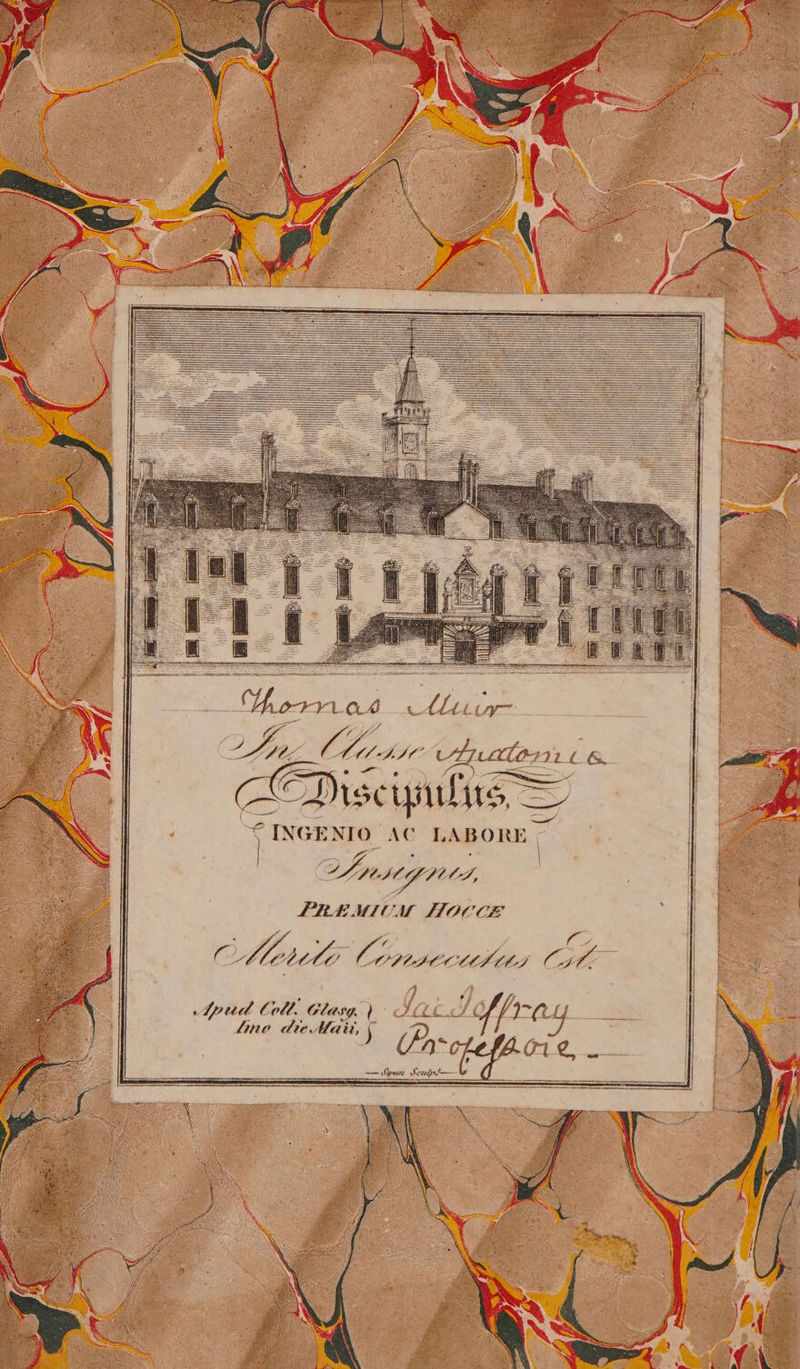 Thomas Muir
In Classe Anatomica
Discipulus,
INGENIO AC LABORE
Insignis,
PRÆMIUM HOCCE
Merito Consecutus Est.
Apud Coll. Glasg. } Jac Jeffray
1mo die Maii, Professore
Swan Sculpt